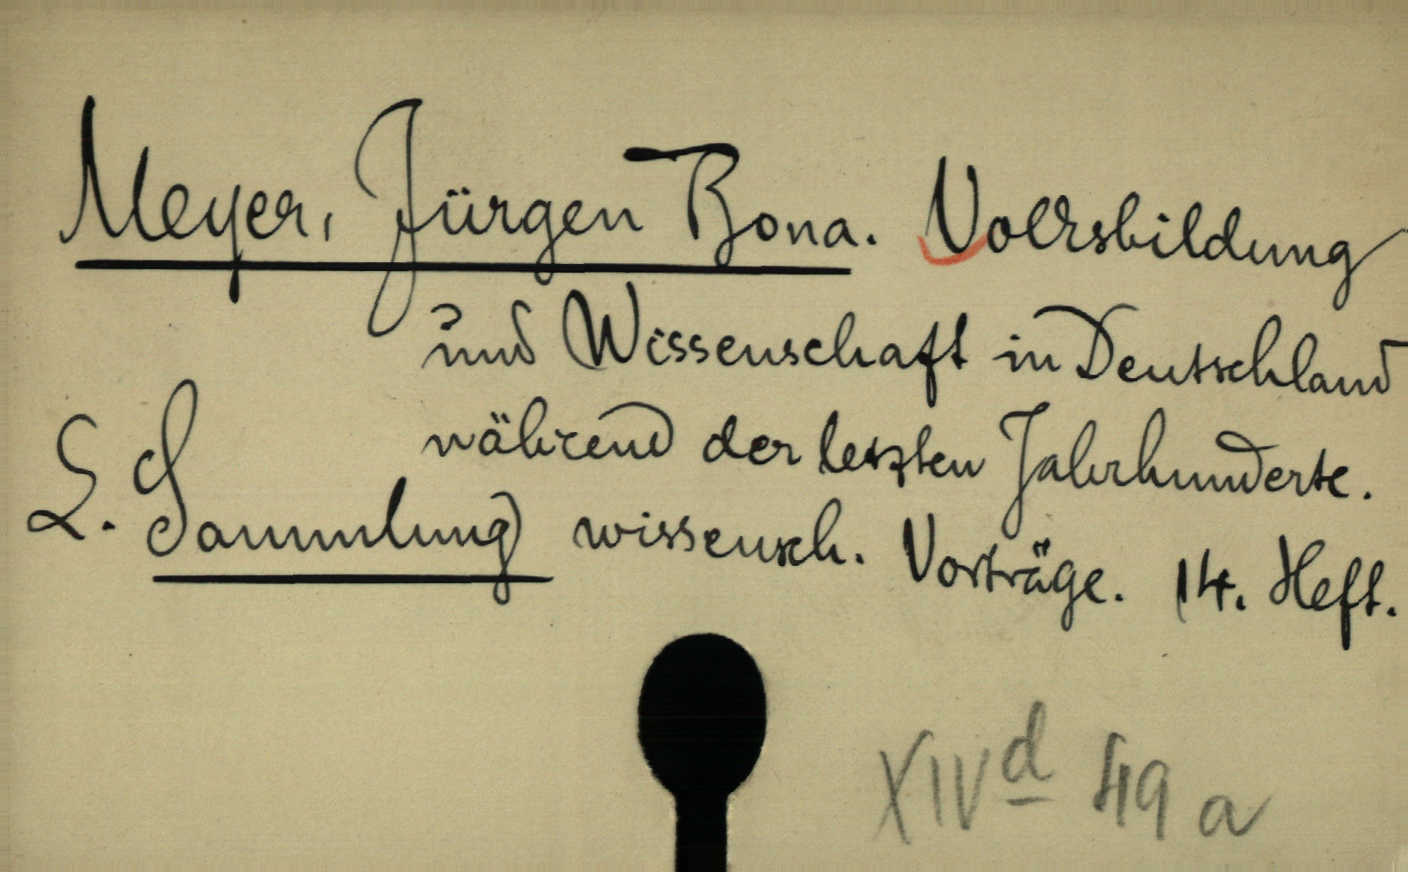 Meyer, Jürgen Bona. Volksbildung
und Wissenschaft in Deutschland
während der letzten Jahrhunderte.
S. Sammlung wissensch. Vorträge. 14. Heft.
XIV d 49 a